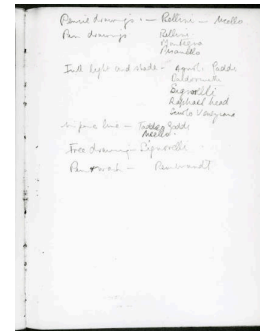 Pencil drawings — Bellini — Ucello
Pen drawings Bellini
Mantegna
With light and shade — Agnolo Gaddi
Signorelli
Raphael head
In pure line — Taddeo Gaddi
Ucello
Free drawing — Signorelli
Pen & wash — Rembrandt